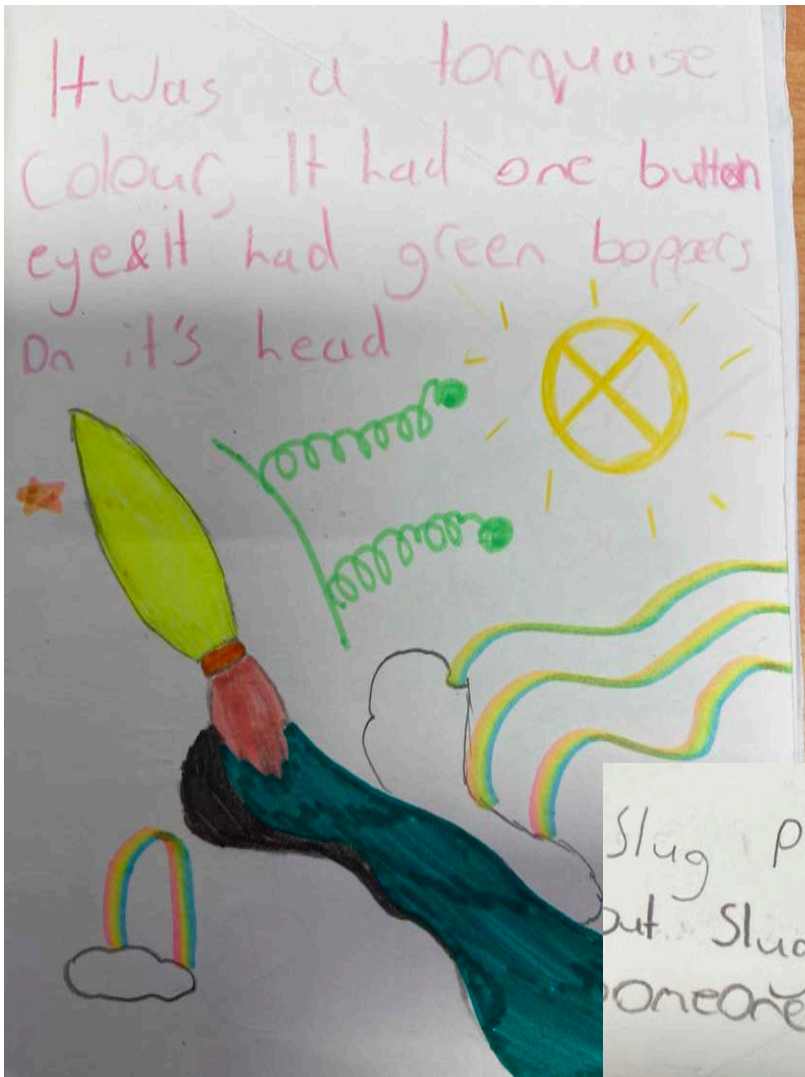 It was a torquaise
Colour, It had one button
eye&It had green boppers
On it's head
Slug P
out Slug
omeone